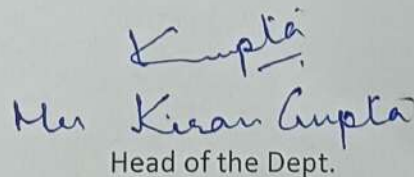 KGupta
Mrs Kiran Gupta
Head of the Dept.